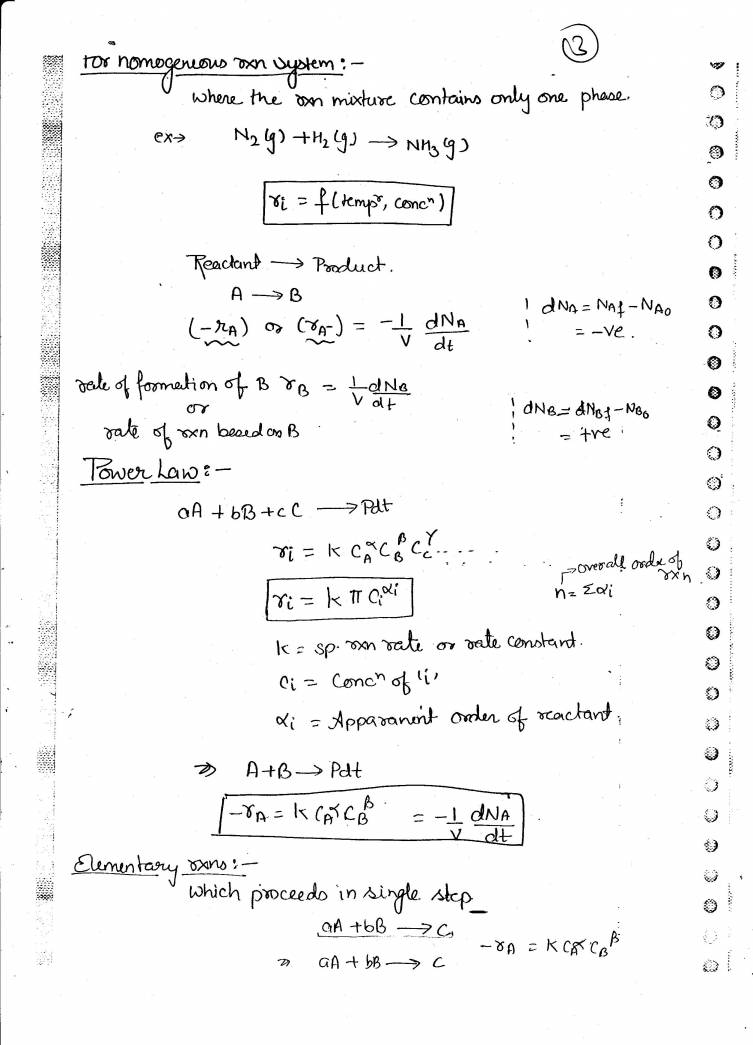 13
For homogeneous rxn system :-
where the rxn mixture contains only one phase.
ex→ N₂(g) + H₂(g) → NH₃(g)
rᵢ = f(tempʳ, concⁿ)
Reactant → Product.
A → B
(-r_A) or (r_A-) = -1/V dN_A/dt
dN_A = N_Af - N_A0
= -ve.
rate of formation of B r_B = 1/V dN_B/dt
or
rate of rxn based on B
dN_B = dN_Bf - N_B0
= +ve
Power Law :-
aA + bB + cC → Pdt
rᵢ = k C_A^α C_B^β C_C^γ ....
rᵢ = k π Cᵢ^αᵢ
→ overall order of rxn
n = Σαᵢ
k = sp. rxn rate or rate constant.
Cᵢ = Concⁿ of 'i'
αᵢ = Apparanent order of reactant
⇒ A + B → Pdt
-r_A = k C_A^α C_B^β = -1/V dN_A/dt
Elementary rxns :-
which proceeds in single step
aA + bB → C,
-r_A = k C_A^α C_B^β
⇒ aA + bB → C